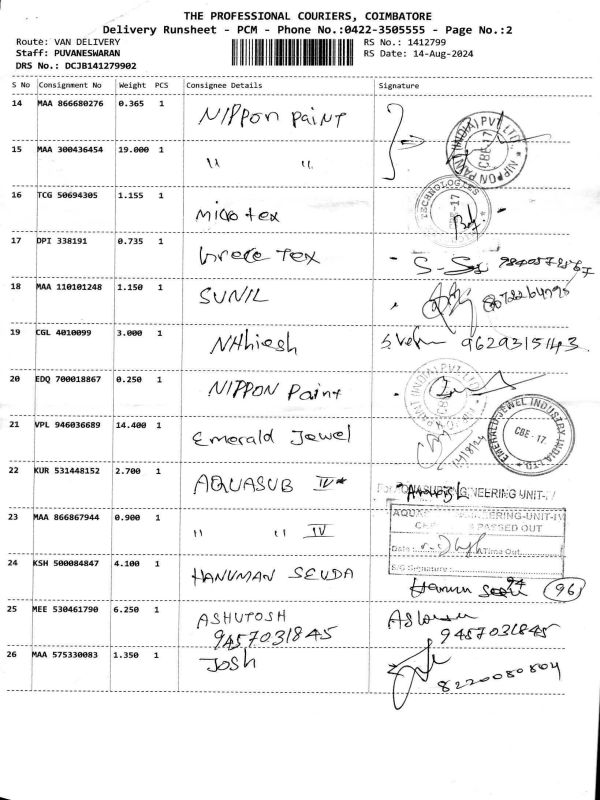 THE PROFESSIONAL COURIERS, COIMBATORE
Delivery Runsheet - PCM - Phone No.:0422-3505555 - Page No.:2
Route: VAN DELIVERY RS No.: 1412799
Staff: PUVANESWARAN RS Date: 14-Aug-2024
DRS No.: DCJB141279902
S No Consignment No Weight PCS Consignee Details Signature
14 MAA 866680276 0.365 1 NIPPON PAINT
NIPPON PAINT (INDIA) PVT LTD CBE-17
15 MAA 300436454 19.000 1 " "
16 TCG 50694305 1.155 1 Micro tex
TECHNOLOGIES
17 DPI 338191 0.735 1 Tex
18 MAA 110101248 1.150 1 SUNIL
19 CGL 4010099 3.000 1 9629315143
20 EDQ 700018867 0.250 1 NIPPON Paint
PAINT (INDIA) PVT LTD
21 VPL 946036689 14.400 1 Emerald Jewel
EMERALD JEWEL INDUSTRY INDIA LTD CBE-17
14/8/24
22 KUR 531448152 2.700 1 AQUASUB IV*
ENGINEERING UNIT-IV
23 MAA 866867944 0.900 1 " " IV
ENGINEERING-UNIT-IV
PASSED OUT
Date : Time Out
S/G Signature :
24 KSH 500084847 4.100 1 HANUMAN SEUDA
96
25 MEE 530461790 6.250 1 ASHUTOSH
9457031845 9457031845
26 MAA 575330083 1.350 1 Josh
8220080804